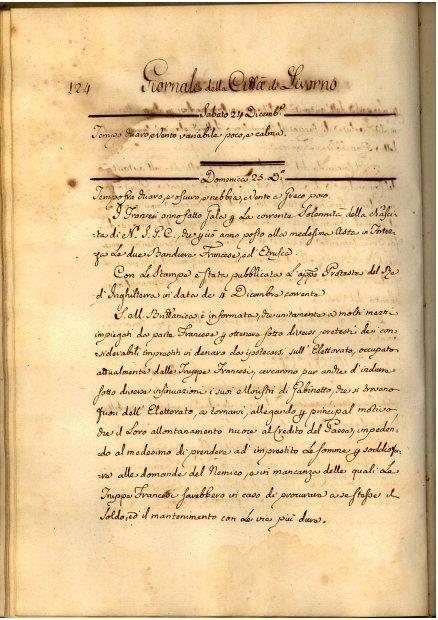 124 Giornale della Città di Livorno
Sabato 24 Dicemb.e
Tempo chiaro, e Vento variabile poco, e calma.
Domenica 25. D.o
Tempo fra chiaro, e oscuro, e nebbia, e Vento a Greco poco.
I Francesi anno fatto Gala p la corrente Solennità della Nasci-
ta di N. S. G. C., che p ciò anno posto alla medesima Asta in Fortez-
za le due Bandiere Francese, ed Etrusca.
Con le Stampe è stata pubblicata l'app.o Protesta del Re
d'Inghilterra in data de 4 Dicembre corrente
S. M. Brittanica è informata, che unitamente a molti mezzi
impiegati da parte Francese p ottenere sotto diversi pretesti dei con-
siderabili imprestiti in denaro da ipotecarsi sull'Elettorato, occupato
attualmente dalle Truppe Francesi, cercarono pur anche d'indurre
sotto diverse insinuazioni i suoi Ministri di Gabinetto, che si trovano
fuori dell'Elettorato, a tornarvi, allegando p principal motivo
che il loro allontanamento nuoce al Credito del Paese, impeden-
do al medesimo di prendere ad imprestito le somme p soddisfa-
re alle domande del Nemico, e in mancanza delle quali le
Truppe Francesi sarebbero in caso di procurare a se stesse il
Soldo, ed il mantenimento con le vie più dure.